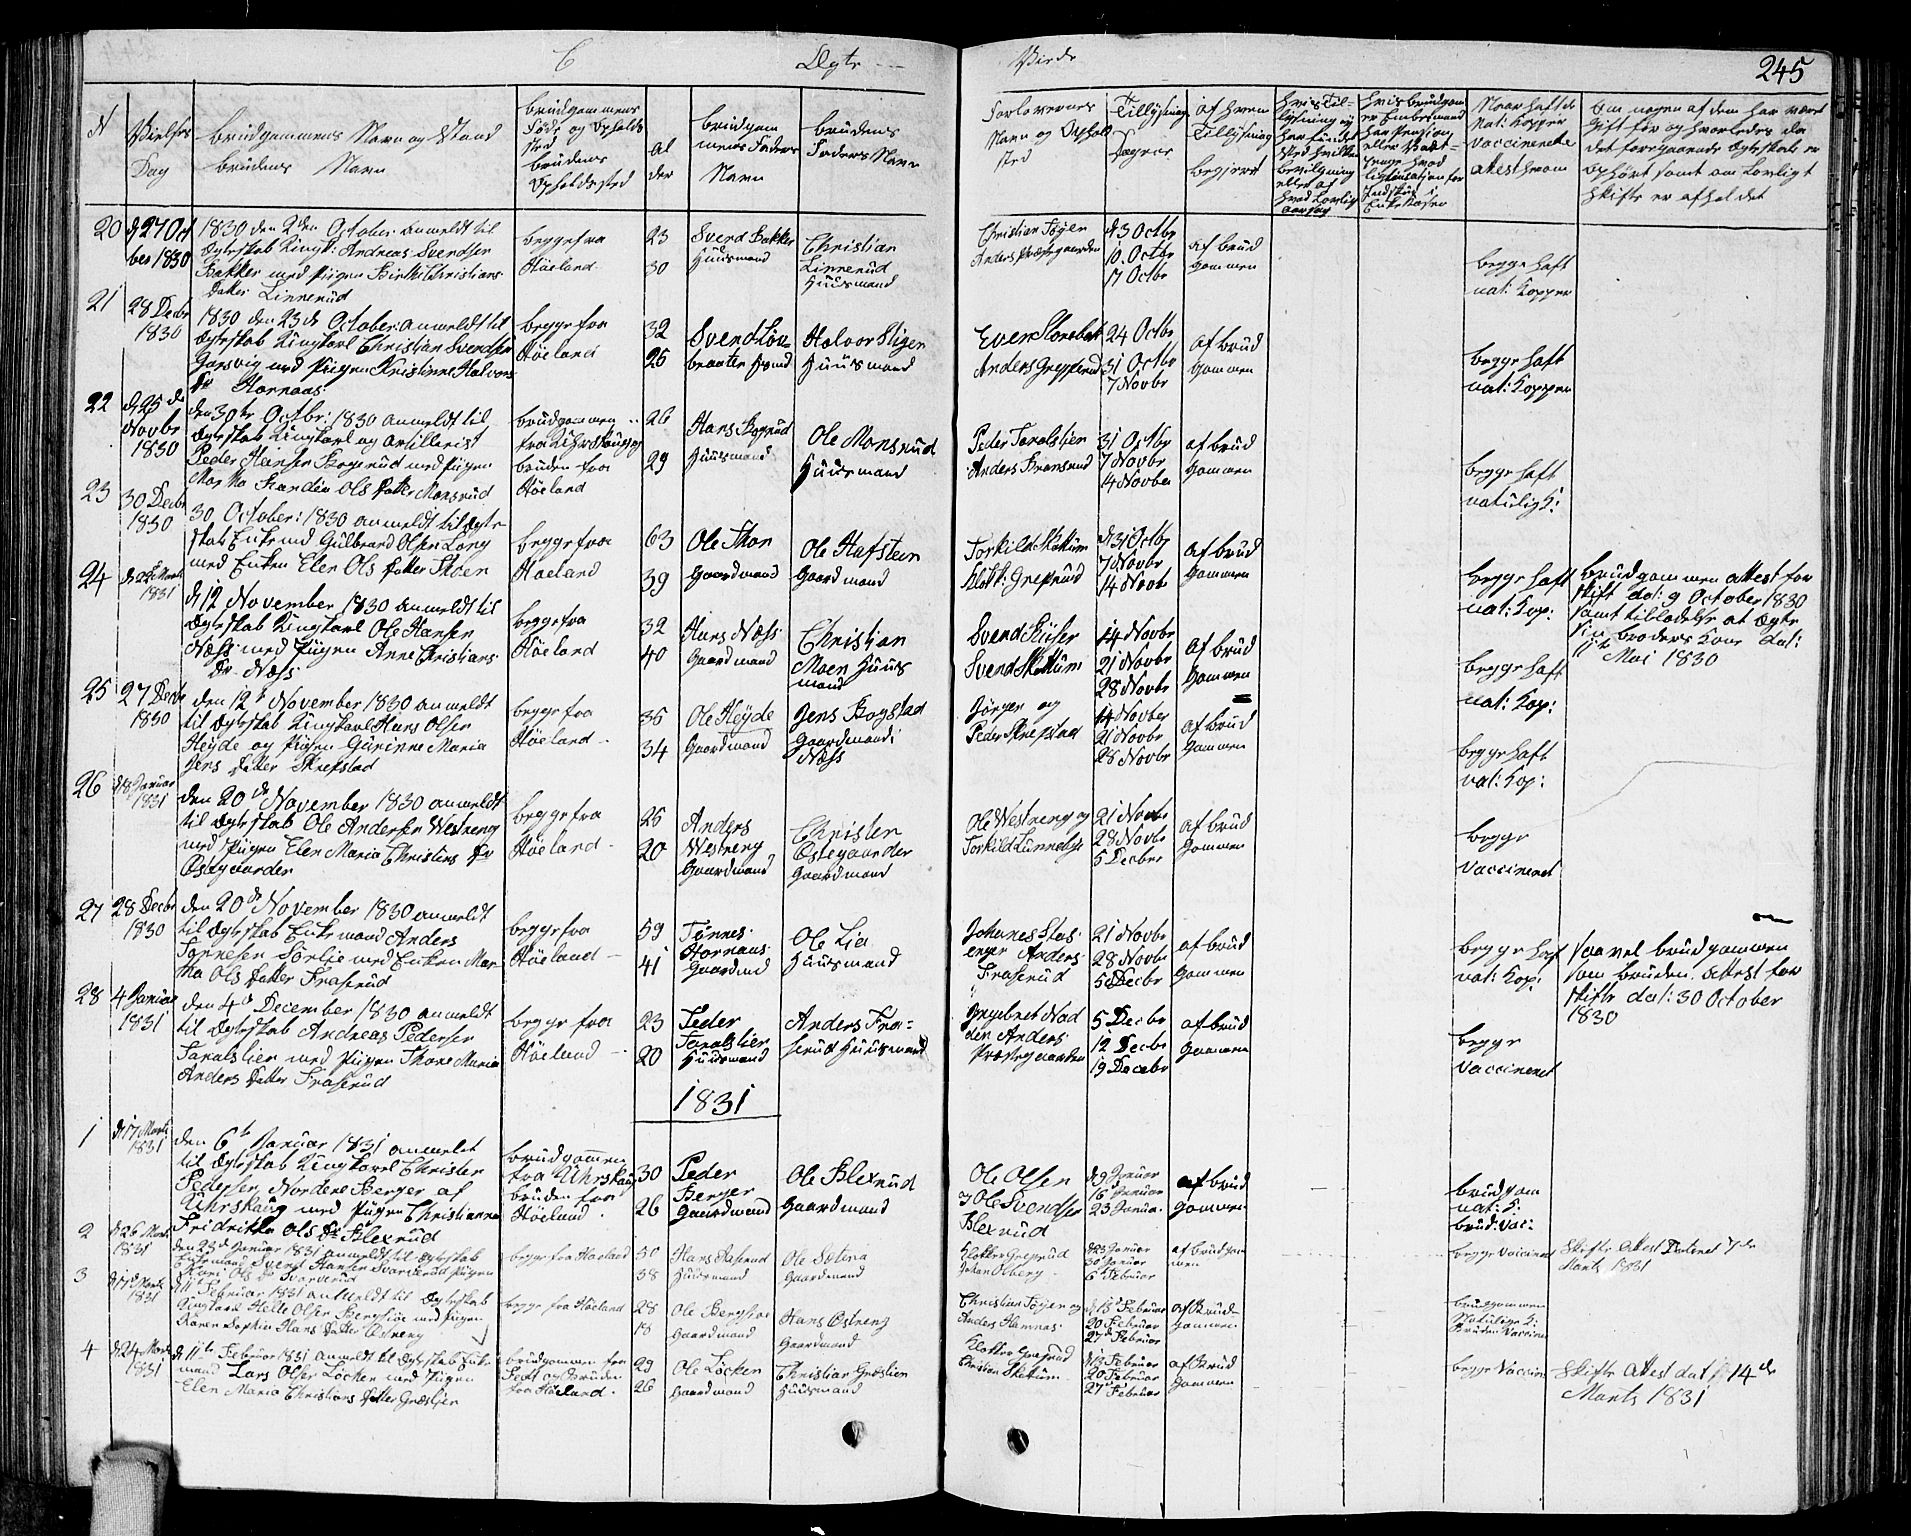 C Ægte
Viede
245
N
Vielses
Dag
Brudgommens Navn og Stand
Brudens Navn
Brudgommens
Føde og Opholds
sted
Brudens
Opholdssted
Al
der
Brudgom
mens Faders
Navn
Brudens
Faders Navn
Forlovernes
Navn og Ophold
sted
Tillysnings
Dagene
Af hvem
Tillysning
begjeret
Naar hafte
Nat: Kopper
vaccinerete
attest hvem
Om nogen af dem har været
gift før og hvorledes da
det foregaaende Ægteskab er
ophørt samt om Lovligt
skifte er afholdet
20
d 27 Oct
ber 1830
1830 den 2den October anmeldt til
Ægteskab Ungk: Andreas Svendsen
Bakker med Pigen Birthe Christians
Datter Linnerud
begge fra
Høeland
23
30
Svend Bakker
Huusmand
Christian
Linnerud
Huusmand
Christian Tøyen
Anders Præstegaarden
d 3 Octbr
10 Octbr
17 Octbr
af brud
gommen
begge haft
nat: Kopper
21
28 Decbr
1830
1830 den 23de October anmeldt til
Ægteskab Ungkarl Christian Svendsen
med Pigen Kristinne Halvors
Dr Hornaas
begge fra
Høeland
32
25
Svend Løv-
braaten Hmd
Halvor Stigen
Huusmand
Even
Anders Greppend
24 Octbr
31 Octbr
7 Novbr
af brud
gommen
begge haft
nat: Kopper
22
d 25 de
Novbr
1830
den 30te Octbr: 1830 anmeldt til
Ægteskab Ungkarl og Artillerist
Peder Hansen Bogerud med Pigen
Martha Olsdatter Monsrud
brudgommen
fra Uhrskoug og
bruden fra
Høeland
26
29
Hans Bogerud
Huusmand
Ole Monsrud
Huusmand
Peder Taralstien
Anders
31 Octbr
7 Novbr
14 Novber
af brud
gommen
begge haft
naturlig K:
23
30 Decbr
1830
30 October: 1830 anmeldt til Ægte
skab Enkemd Gulbrand Olsen Long
med Enken Elen Ols Datter Skoen
begge fra
Høeland
63
39
Ole Skon
Gaardmand
Ole Hafsteen
Gaardmand
Torkild Skattum
Klokk: Greprud
d 31 Octbr
7 Novbr
14 Novbr
af brud
gommen
begge haft
nat: Kop:
brudgommen attest for
skift dat: 9 October 1830
samt tilladelse at Ægte
sin broders Kone dat:
Mai 1830
24
1831
d 12 November 1830 anmeldt til
Ægteskab Ungkarl Ole Hansen
Næss med Pigen Anne Christians
Dr. Næss
begge fra
Høeland
32
40
Hans Næss
Gaardmand
Christian
Moen Huus
mand
Svend
Svend Skattum
14 Novbr
21 Novbr
28 Novbr
af brud
gommen
begge haft
nat: Kop:
25
27 Decbr
1830
den 12te November 1830 anmeldt
til Ægteskab Ungkarl Hans Olsen
Heyde og Pigen Gurinne Maria
Jens Datter Skrefstad
begge fra
Høeland
35
34
Ole Heyde
Gaardmand
Jens Bogstad
Gaardmand i
Næss
Jørgen og
Peder Skrefstad
14 Novber
21 Novbr
28 Novbr
af brud
gommen
begge haft
nat: Kop:
26
d 8 Januar
1831
den 20de November 1830 anmeldt
til Ægteskab Ole Andersen Westreng
med Pigen Elen Maria Christens Dr
Ostegaarden
begge fra
Høeland
25
20
Anders
Westreng
Gaardmand
Christen
Østegaarden
Gaardmand
Ole Westreng og
Torkild Lunneby
21 Novbr
28 Novbr
5 Decber
af brud
gommen
begge
vaccineret
27
28 Decbr
1830
den 20de November 1830 anmeldt
til Ægteskab Enkemand Anders
Tønnesen Sørlie med Enken Mar
tha Ols Datter Fraserud
begge fra
Høeland
59
41
Tønnes
Hornaas
Gaardmd
Ole Lia
Huusmand
Johanes Stas
enger Anders
Fraserud
21 Novbr
28 Novbr
5 Decbr
af brud
gommen
begge haft
nat: Kop:
saavel brudgommen
som bruden attest for
skifte dat: 30 October
1830
28
4 Januar
1831
den 4de December 1830 anmeldt
til Ægteskab Andreas Pedersen
Taralstien med Pigen Thone Maria
Anders Datter Fraserud
begge fra
Høeland
23
20
Peder
Taralstien
Huusmand
Anders Fra-
serud Huusmand
Ingebret Nad
den Anders
Præstegaarden
5 Decbr
12 Decbr
19 Decebr
af brud
gommen
begge
vaccineret
1831
1
d 17 Marts
1831
den 6te Januar 1831 anmeldt
til Ægteskab Ungkarl Christen
Pedersen Nordene Berger af
Uhrskoug med Pigen Christianna
Fridrikka Ols Dr Blexrud
brudgommen
fra Uhrskoug
bruden fra
Høeland
30
26
Peder
Berger
Gaardmand
Ole Blexrud
Gaardmand
Ole Olsen
Ole Svendsen
Blexrud
d 9 Januar
16 Januar
23 Janua.
af brud
gommen
brudgom
nat: K.
brud: vac:
2
d 26 Marts
1831
den 23de Januar 1831 anmeldt til Ægteskab
Enkemand Svend Hansen Svarverud Pigen
Kari Ols Dr Svarverud
begge fra Høeland
50
38
Hans Aaserud
Huusmand
Ole Setera
Gaardmand
Klokker Greprud
Johan Olberg
d 23 Januar
30 Januar
6te Februar
af brudgom
men
begge vaccineret
Skifte Attest Dateret 7de
Marts 1831
3
d 17de Marts
1831
d 11te Februar 1831 anmeldt til Ægteskab
Ungkarl Helle Olsen Bergsjøe med Pigen
Karen Sophia Hans Datter Østreng
begge fra Høeland
28
18
Ole Bergsjøe
Gaardmand
Hans Østreng
Gaardmand
Christian Tøyen og
Anders Hamnas
d 13 Februar
20 Februar
27de Februar
af Brud-
gommen
brudgommen
Natulige K:
Bruden Vaccine
4
d 24 Marts
1831
d 11te Februar 1831 anmeldt til Ægteskab Enke
mand Lars Olsen Løcken med Pigen
Elen Maria Christians Datter Græslien
brudgommen fra
Fedt og Bruden
fra Høeland
29
26
Ole Løcken
Gaardmand
Christian Græslien
Huusmand
Klokker Greprud
Christian Skattum
d 13 Februar
20 Februar
27de Februar
af Brud
gommen
begge Vaccine
Skifte Attest dat 14de
Marts 1831